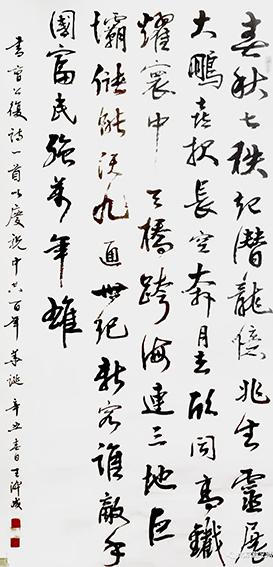 春秋七秩記潛龍億兆生靈展
大鵬喜報長空奔月去欣闻高鐵
耀寰中天橋跨海連三地巨
壩储能沃九通世紀新容誰敵手
國富民強萬年雄
書復詩一首以慶祝中共百年華誕辛丑春日王成